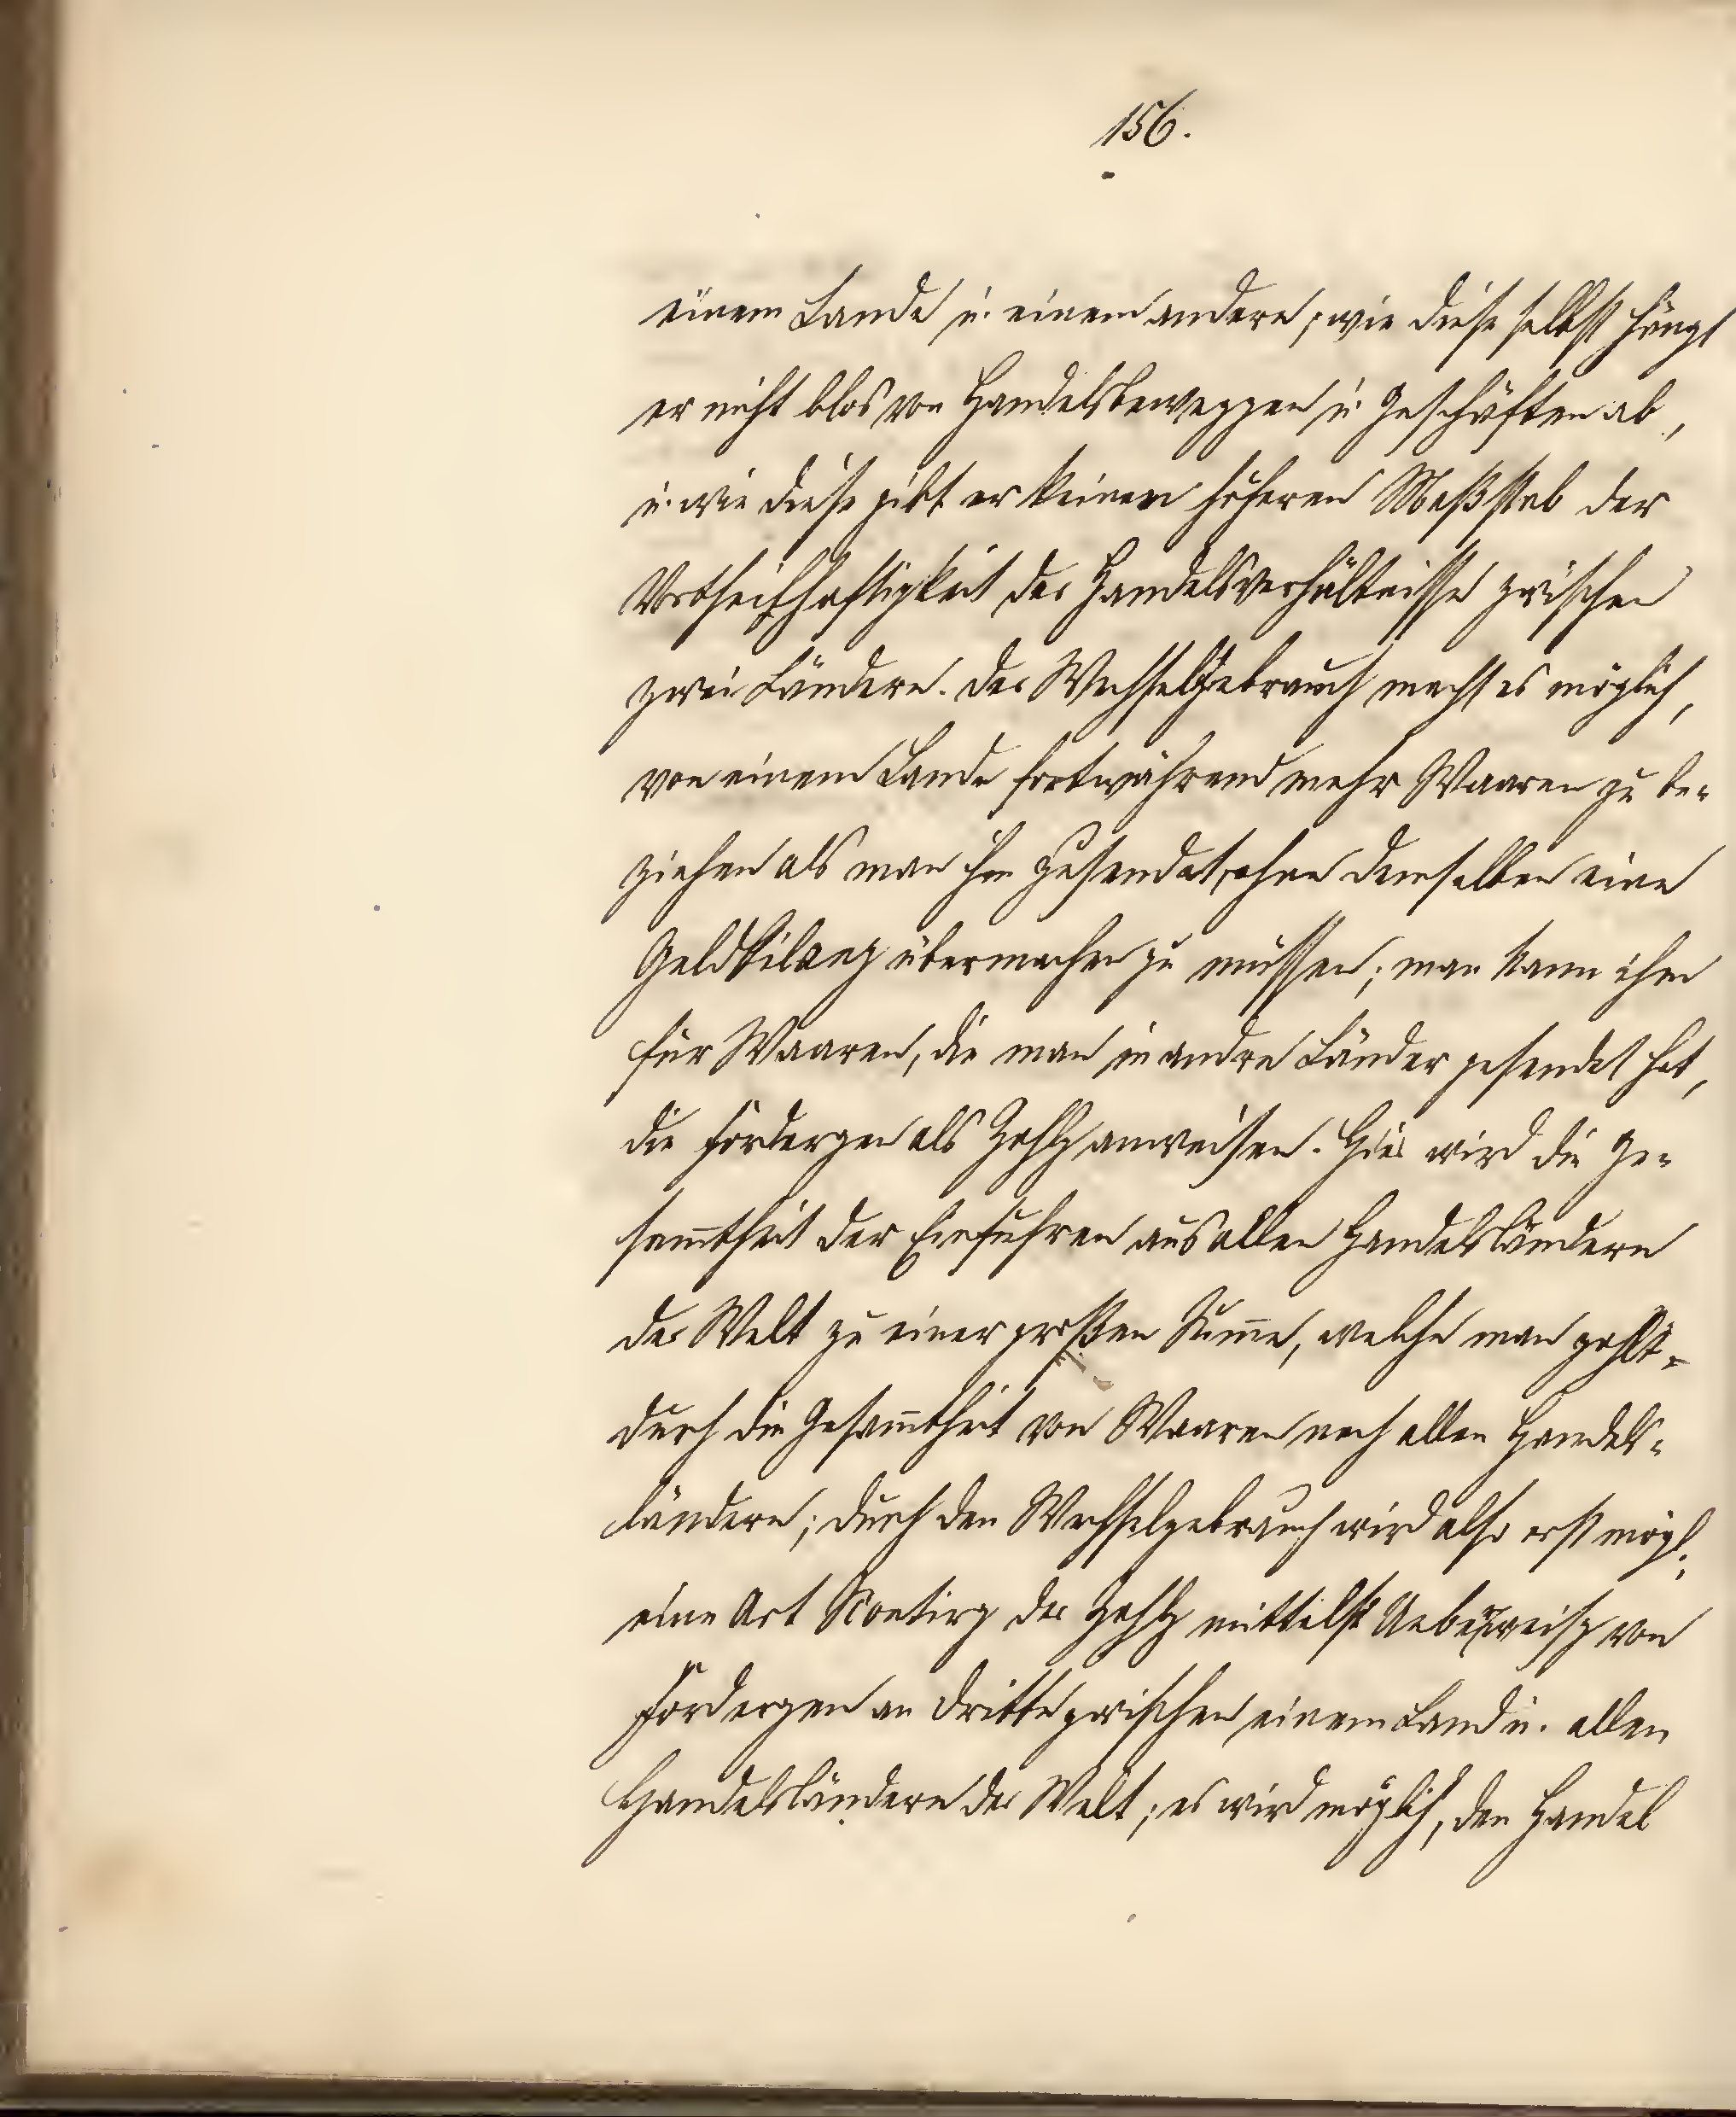 156.
einem Lande u. einem andern; wie diese selbst hängt
er nicht blos von Handelsbeweggen u. Geschäften ab,
u. wie diese gibt er keinen höheren Maßstab der
Vortheilhaftigkeit der Handelsverhältnisse zwischen
zwei Ländern. Der Wechselgebrauch macht es möglich,
von einem Lande fortwährend mehr Waaren zu be-
ziehen als man ihm zusendet, ohne demselben eine
Geldbilanz übermachen zu müssen; man kann ihm
für Waaren, die man in andre Länder gesendet hat,
die Fordergen als Zahlg anweisen. Hier wird die Ge-
sam̅theit der Einfuhren aus allen Handelsländern
der Welt zu einer großen Sum̅e, welche man zahlt
durch die Gesam̅theit von Waaren nach allen Handels-
ländern; durch den Wechselgebrauch wird also erst mögl.
eine Art Scontirg der Zahlg mittelst Ueberweisg von
Fordergen an Dritte zwischen einem Land u. allen
Handelsländern der Welt; es wird möglich, den Handel